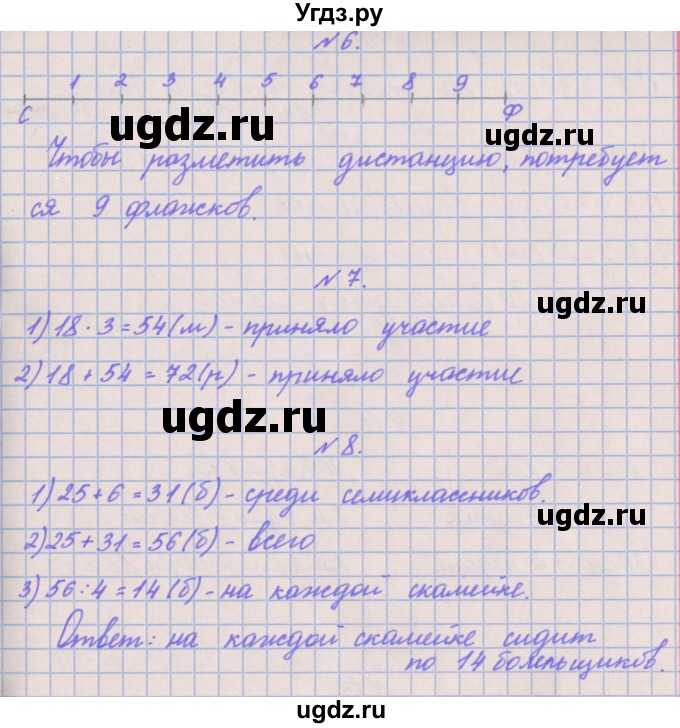 Угдз.ру
№ 6.
1 2 3 4 5 6 7 8 9
С Ф
ugdz.ru ugdz.ru
Чтобы разметить дистанцию, потребует
ся 9 флажков.
№ 7.
ugdz.ru
1) 18 · 3 = 54 (м) - приняло участие
2) 18 + 54 = 72 (р) - приняло участие
ugdz.ru
№ 8.
1) 25 + 6 = 31 (б) - среди семиклассников.
ugdz.ru
2) 25 + 31 = 56 (б) - всего
3) 56 : 4 = 14 (б) - на каждой скамейке.
Ответ: на каждой скамейке сидит
по 14 болельщиков.
ugdz.ru